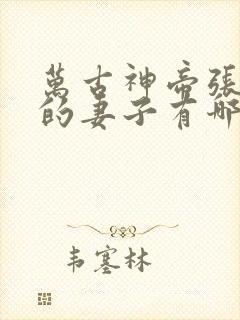 萬古神帝張
的妻子有哪
韦塞林